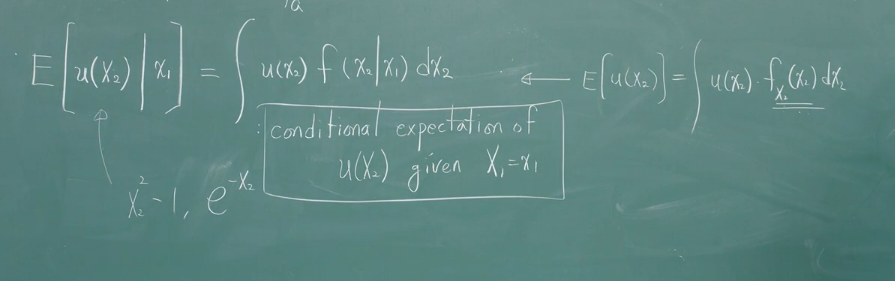 E[u(X₂)|x₁] = ∫ u(x₂) f(x₂|x₁) dx₂ ← E[u(X₂)] = ∫ u(x₂)·f_X₂(x₂) dx₂
: conditional expectation of
u(X₂) given X₁=x₁
X₂²-1, e^-X₂